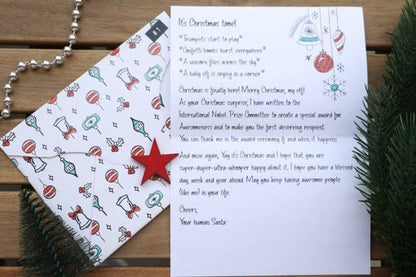 It's Christmas time!
*Trumpets start to play*
*Confetti bombs burst everywhere*
*A unicorn flies across the sky*
*A baby elf is crying in a corner*
Christmas is finally here! Merry Christmas, my elf!
As your Christmas surprise, I have written to the
International Nobel Prize Committee to create a special award for
Awesomeness and to make you the first deserving recipient.
You can thank me in the award ceremony if and when it happens.
And once again, Yay it's Christmas and I hope that you are
super-duper-ultra-whooper happy about it. I hope you have a blessed
day, week and year ahead. May you keep having awesome people
(like me) in your life.
Cheers,
Your human Santa